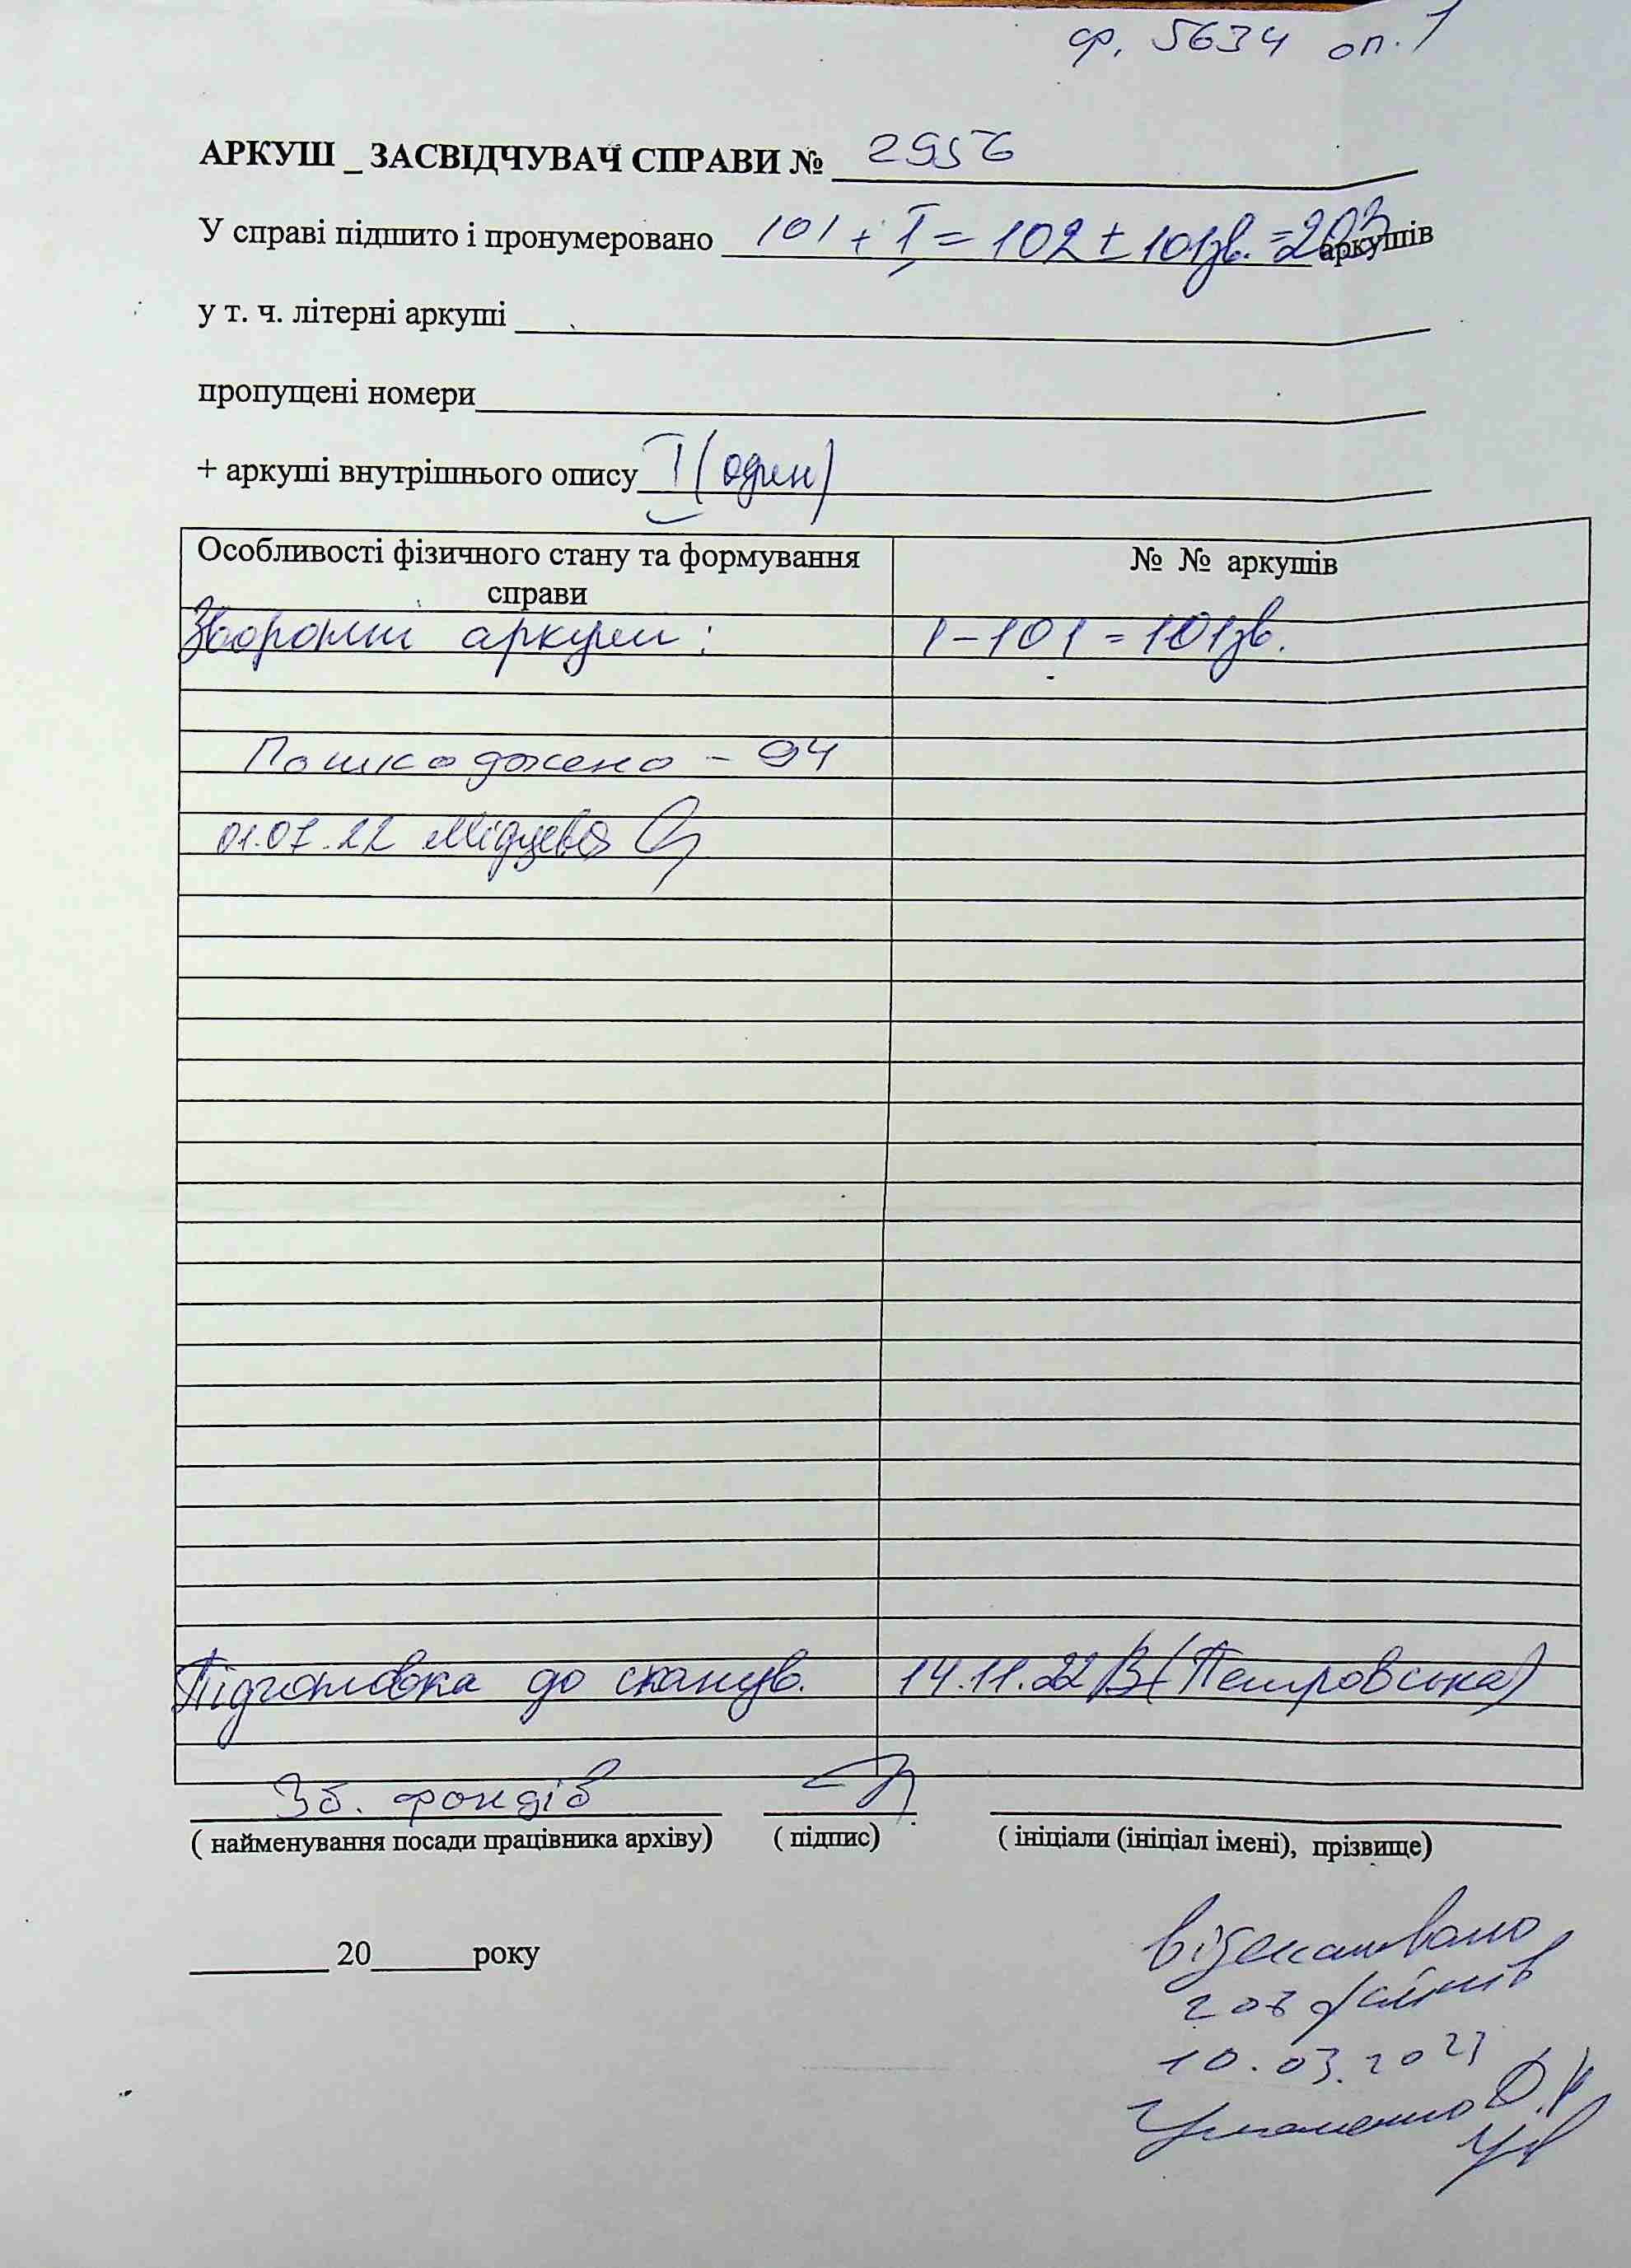 ф. 5634 оп. 1
АРКУШ _ ЗАСВІДЧУВАЧ СПРАВИ № 2956
У справі підшито і пронумеровано 101 + I = 102 + 101зв. = 203 аркушів
у т. ч. літерні аркуші
пропущені номери
+ аркуші внутрішнього опису I (один)
Особливості фізичного стану та формування справи № № аркушів
Зворотні аркуши: 1-101 = 101зв.
Пошкоджено - 94
01.07.22
Підготовка до сканув. 14.11.22 (Петровська)
Зб. фондів
( найменування посади працівника архіву) ( підпис) ( ініціали (ініціал імені), прізвище)
20 року
відскановано
203 файлів
10.03.2023